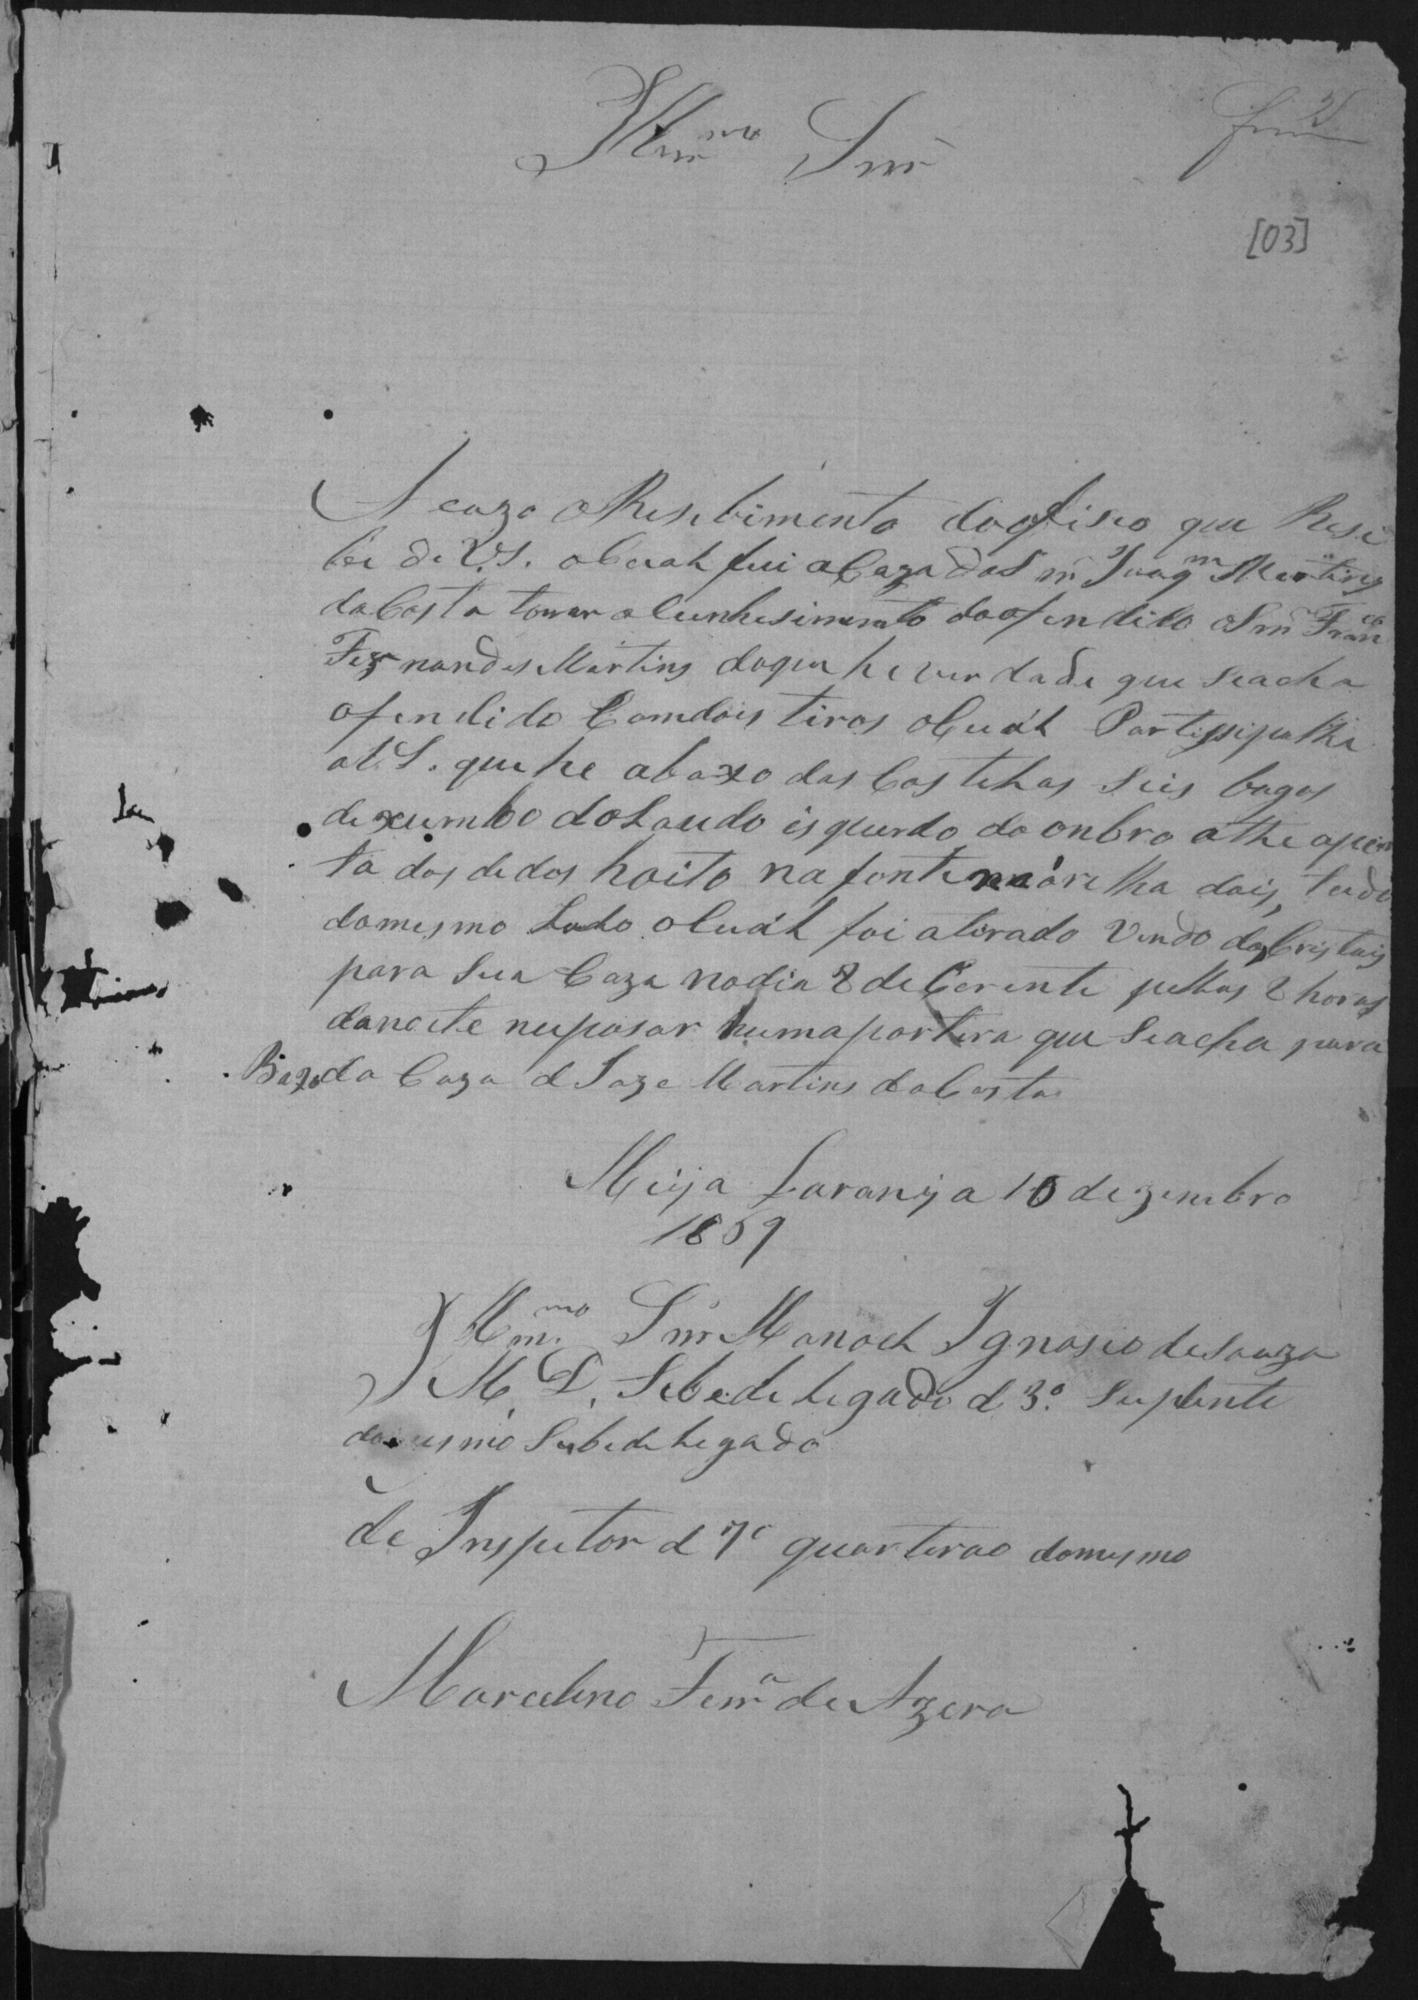 Illm.mo Snr
[03]
Acuzo o Resebimento do ofisio que Rese
bi de V.S. o Cual fui a Caza do Snr Joaqm Martins
da Costa tomar o Cunhesimento do ofendido o Snr Franco
Fernandes Martins do que he verdade que se acha
ofendido Com dois tiros o Cuál Partissipo lhe
a V.S. que he abaxo das Costelhas seis bagos
de xumbo do Laudo isquerdo do onbro athe a pon
ta dos dedos hoito na fonte na órelha dois, tudo
do mesmo Lado o Cuál foi atirado Vindo dos Cristais
para sua Caza no dia 8 de Corente pellas 8 horas
da noite no pasar huma porteira que se acha para
Baxo da Caza d Joze Martins da Costa
Meija Laranija 10 dezembro
1869
Illm.mo Snr Manoel Ignasio de Souza
M. D. Sebedelegado d 3º Suplente
do mesmo Subedelegado
de Inspetor d 7º quarterao do mesmo
Marcelino Ferra de Azera